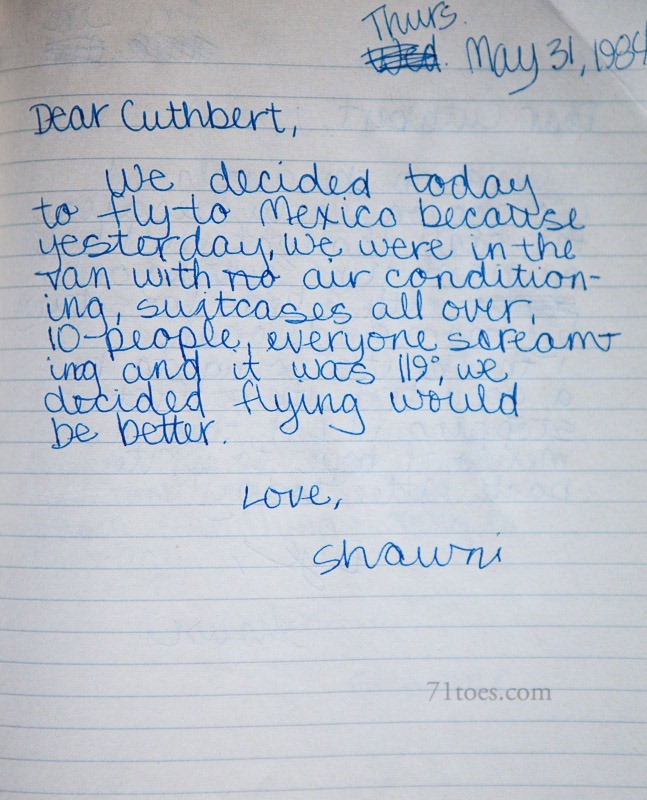 Thurs.
Wed. May 31, 1984
Dear Cuthbert,
We decided today
to fly to Mexico because
yesterday, we were in the
van with no air condition-
ing, suitcases all over,
10-people, everyone scream-
ing and it was 119°, we
decided flying would
be better.
Love,
Shawni
71toes.com